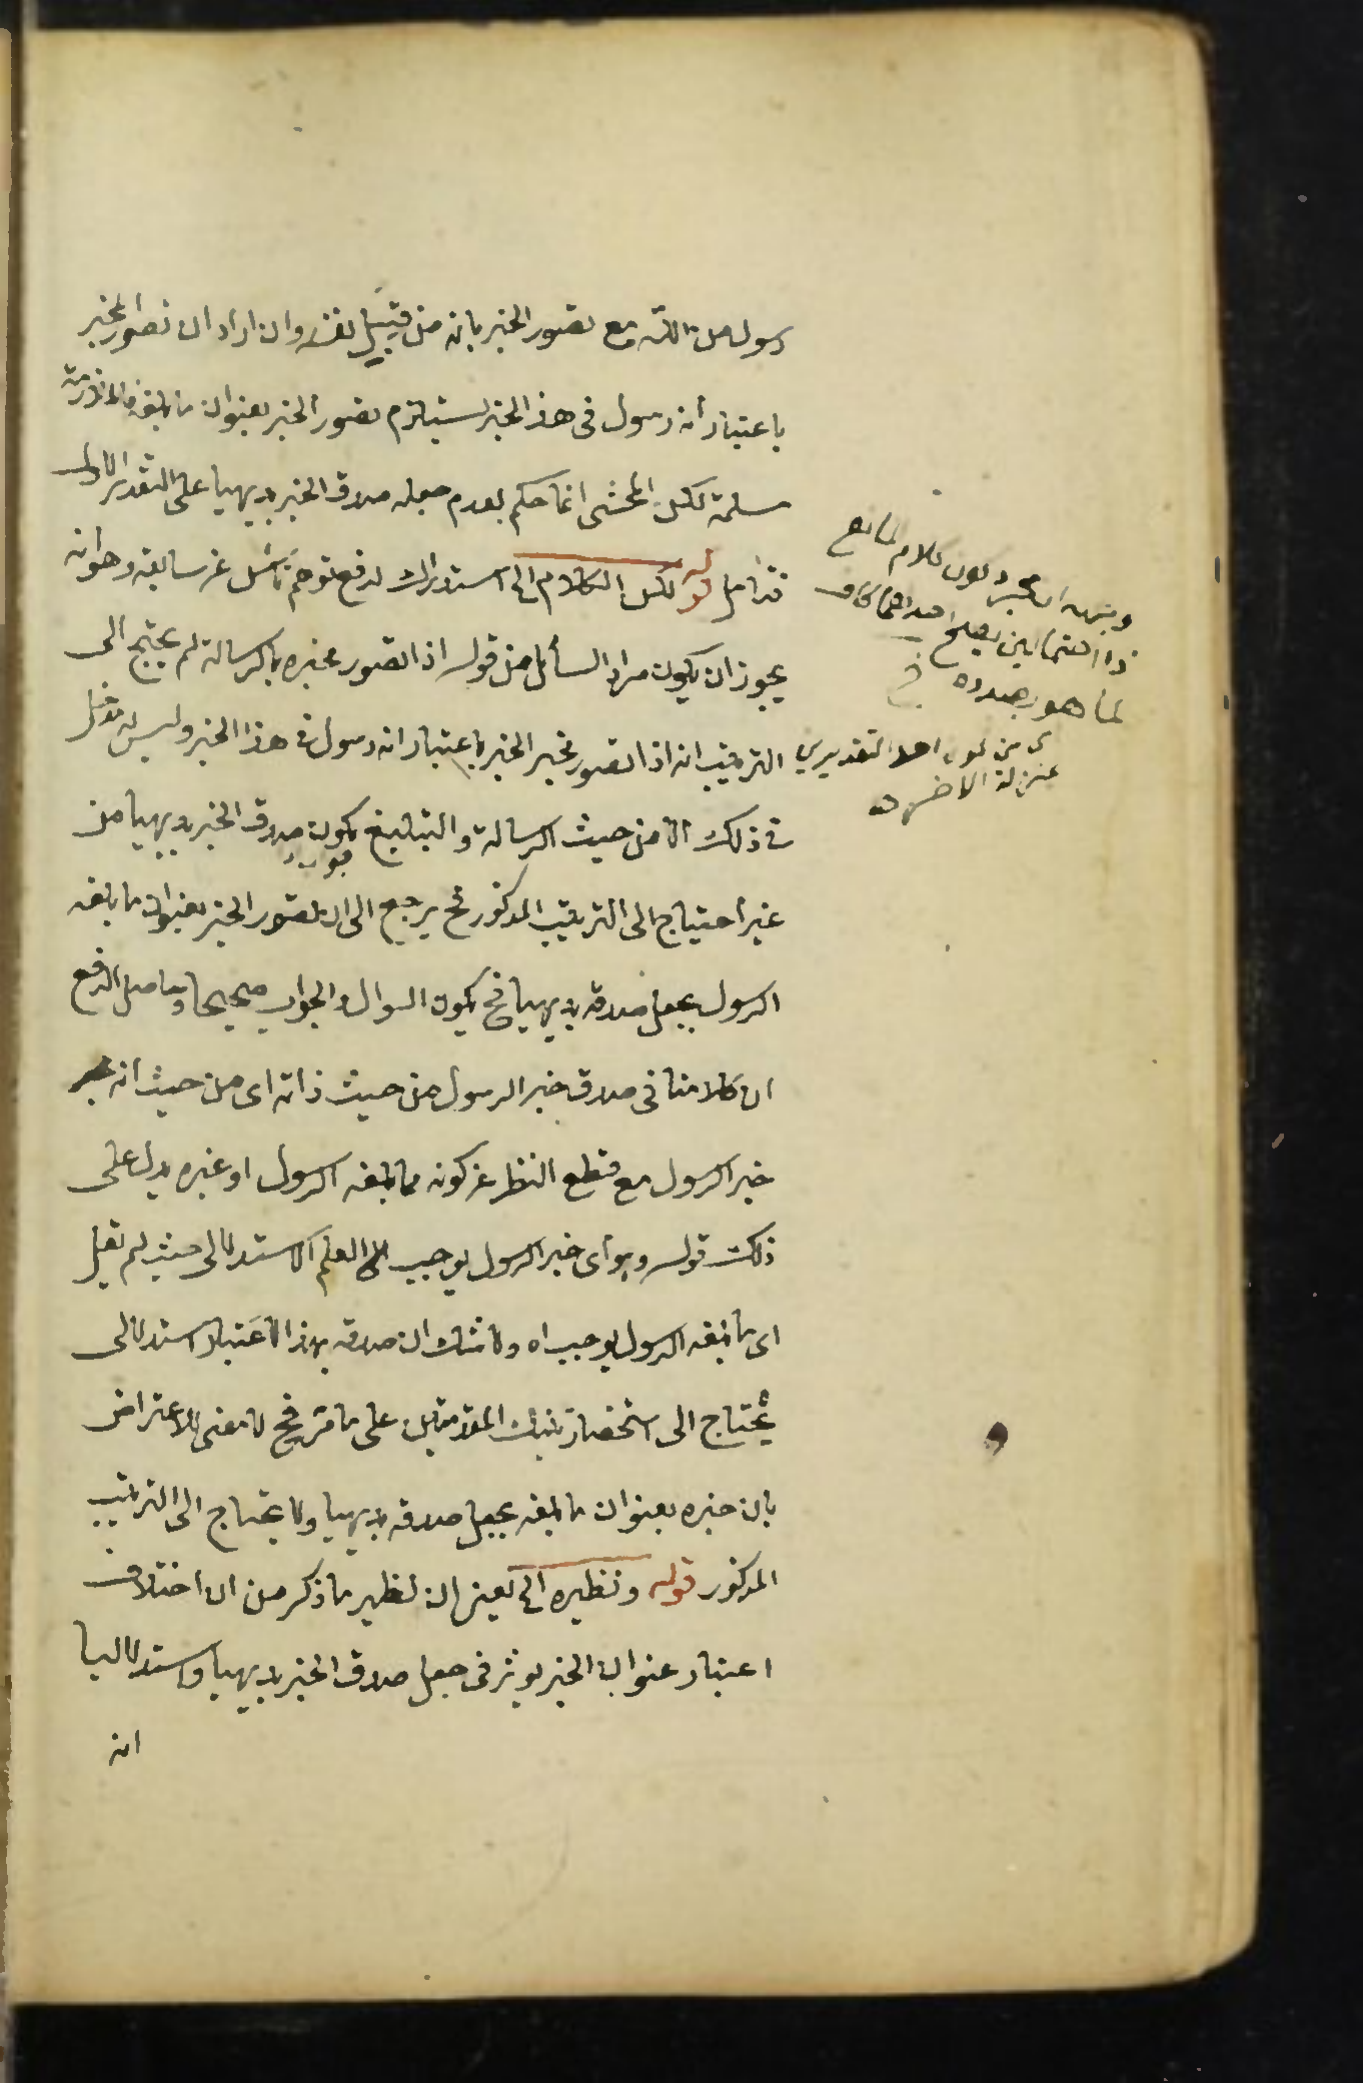 رسول من الله مع تصور الخبر بانه من قبيل نفسه وان اراد ان تصور المخبر
باعتبار انه رسول فى هذا الخبر يستلزم تصور الخبر بعنوان ما بلغه فالملازمة
مسلمة لكن المحشى انما حكم بعدم جعله صدق الخبر بديهيا على التقدير الاول
فتامل قوله لكن الكلام الى استدراك لدفع توهم ناش عن سابقه وهو انه
يجوز ان يكون مراد السائل من قوله اذا تصور مخبره بالرسالة لم يحتج الى
الترتيب انه اذا تصور مخبر الخبر باعتبار انه رسول فى هذا الخبر وليس له مدخل
فى ذلك الا من حيث الرسالة والتبليغ يكون صدق الخبر بديهيا من
غير احتياج الى الترتيب المذكور فح يرجع الى ان تصور الخبر بعنوان ما بلغه
الرسول يجعل صدقه بديهيا فح يكون السوال والجواب صحيحا وحاصل الدفع
ان كلامنا فى صدق خبر الرسول من حيث ذاته اى من حيث انه
خبر الرسول مع قطع النظر عن كونه مما بلغه الرسول او غيره يدل على
ذلك قوله وهو اى خبر الرسول يوجب العلم الاستدلالى حيث لم يقل
اى ما بلغه الرسول يوجب اه ولا شك ان صدقه بهذا الاعتبار استدلالى
يحتاج الى استحضار تينك المقدمتين على ما مر فح لا معنى للاعتراض
بان خبره بعنوان ما بلغه يجعل صدقه بديهيا ولا يحتاج الى الترتيب
المذكور قوله ونظيره الى يعنى ان نظير ما ذكر من ان اختلاف
اعتبار عنوان الخبر يوثر فى جعل صدق الخبر بديهيا واستدلاليا
انه
وجهه ان مجرد كون كلام المانع
ذا احتمالين يصح احدهما كاف
لما هو بصدده
من كون احد التقديرين
بمنزلة الاخر